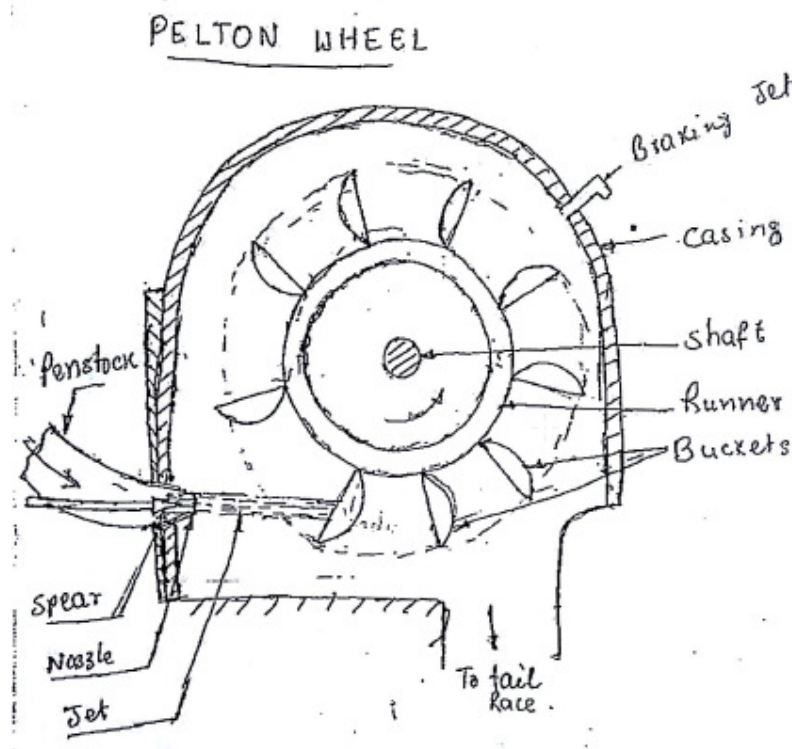 PELTON WHEEL
Braking Jet
Casing
Shaft
Runner
Buckets
Penstock
Spear
Nozzle
Jet
To tail
Race.